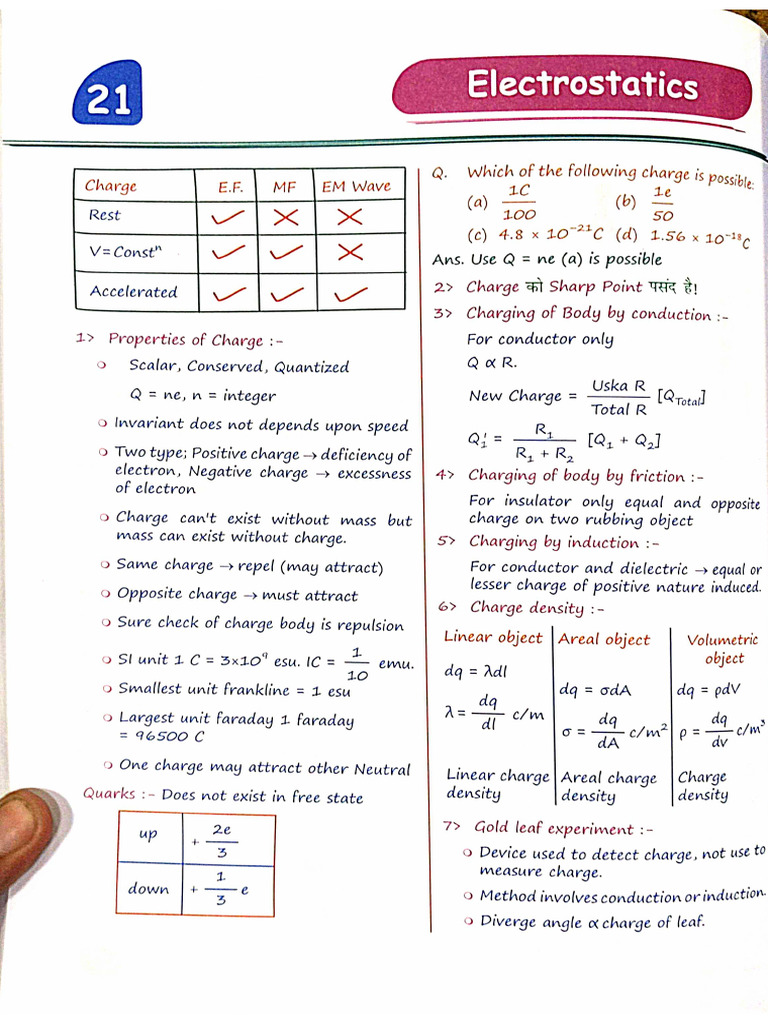 21
Electrostatics
Charge E.F. MF EM Wave
Rest ✓ ✗ ✗
V=Constⁿ ✓ ✓ ✗
Accelerated ✓ ✓ ✓
1> Properties of Charge :-
○ Scalar, Conserved, Quantized
Q = ne, n = integer
○ Invariant does not depends upon speed
○ Two type; Positive charge → deficiency of
electron, Negative charge → excessness
of electron
○ Charge can't exist without mass but
mass can exist without charge.
○ Same charge → repel (may attract)
○ Opposite charge → must attract
○ Sure check of charge body is repulsion
○ SI unit 1 C = 3×10⁹ esu. IC = 1/10 emu.
○ Smallest unit frankline = 1 esu
○ Largest unit faraday 1 faraday
= 96500 C
○ One charge may attract other Neutral
Quarks :- Does not exist in free state
up + 2e/3
down + 1/3 e
Q. Which of the following charge is possible:
(a) 1C/100 (b) 1e/50
(c) 4.8 × 10⁻²¹C (d) 1.56 × 10⁻¹⁸C
Ans. Use Q = ne (a) is possible
2> Charge को Sharp Point पसंद है!
3> Charging of Body by conduction :-
For conductor only
Q ∝ R.
New Charge = Uska R/Total R [Q_Total]
Q₁' = R₁/R₁ + R₂ [Q₁ + Q₂]
4> Charging of body by friction :-
For insulator only equal and opposite
charge on two rubbing object
5> Charging by induction :-
For conductor and dielectric → equal or
lesser charge of positive nature induced.
6> Charge density :-
Linear object Areal object Volumetric
object
dq = λdl dq = σdA dq = ρdV
λ = dq/dl c/m σ = dq/dA c/m² ρ = dq/dv c/m³
Linear charge Areal charge Charge
density density density
7> Gold leaf experiment :-
○ Device used to detect charge, not use to
measure charge.
○ Method involves conduction or induction.
○ Diverge angle ∝ charge of leaf.